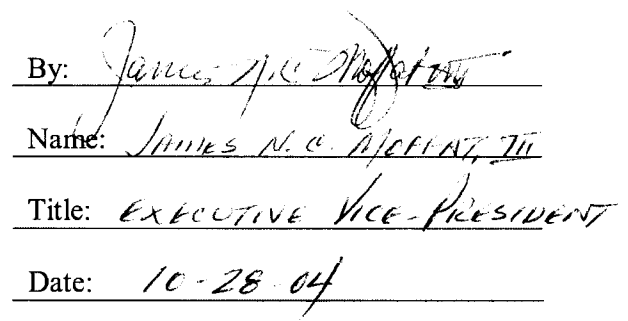 By: James N.C. Moffat III
Name: JAMES N. C. MOFFAT, III
Title: EXECUTIVE VICE-PRESIDENT
Date: 10-28-04